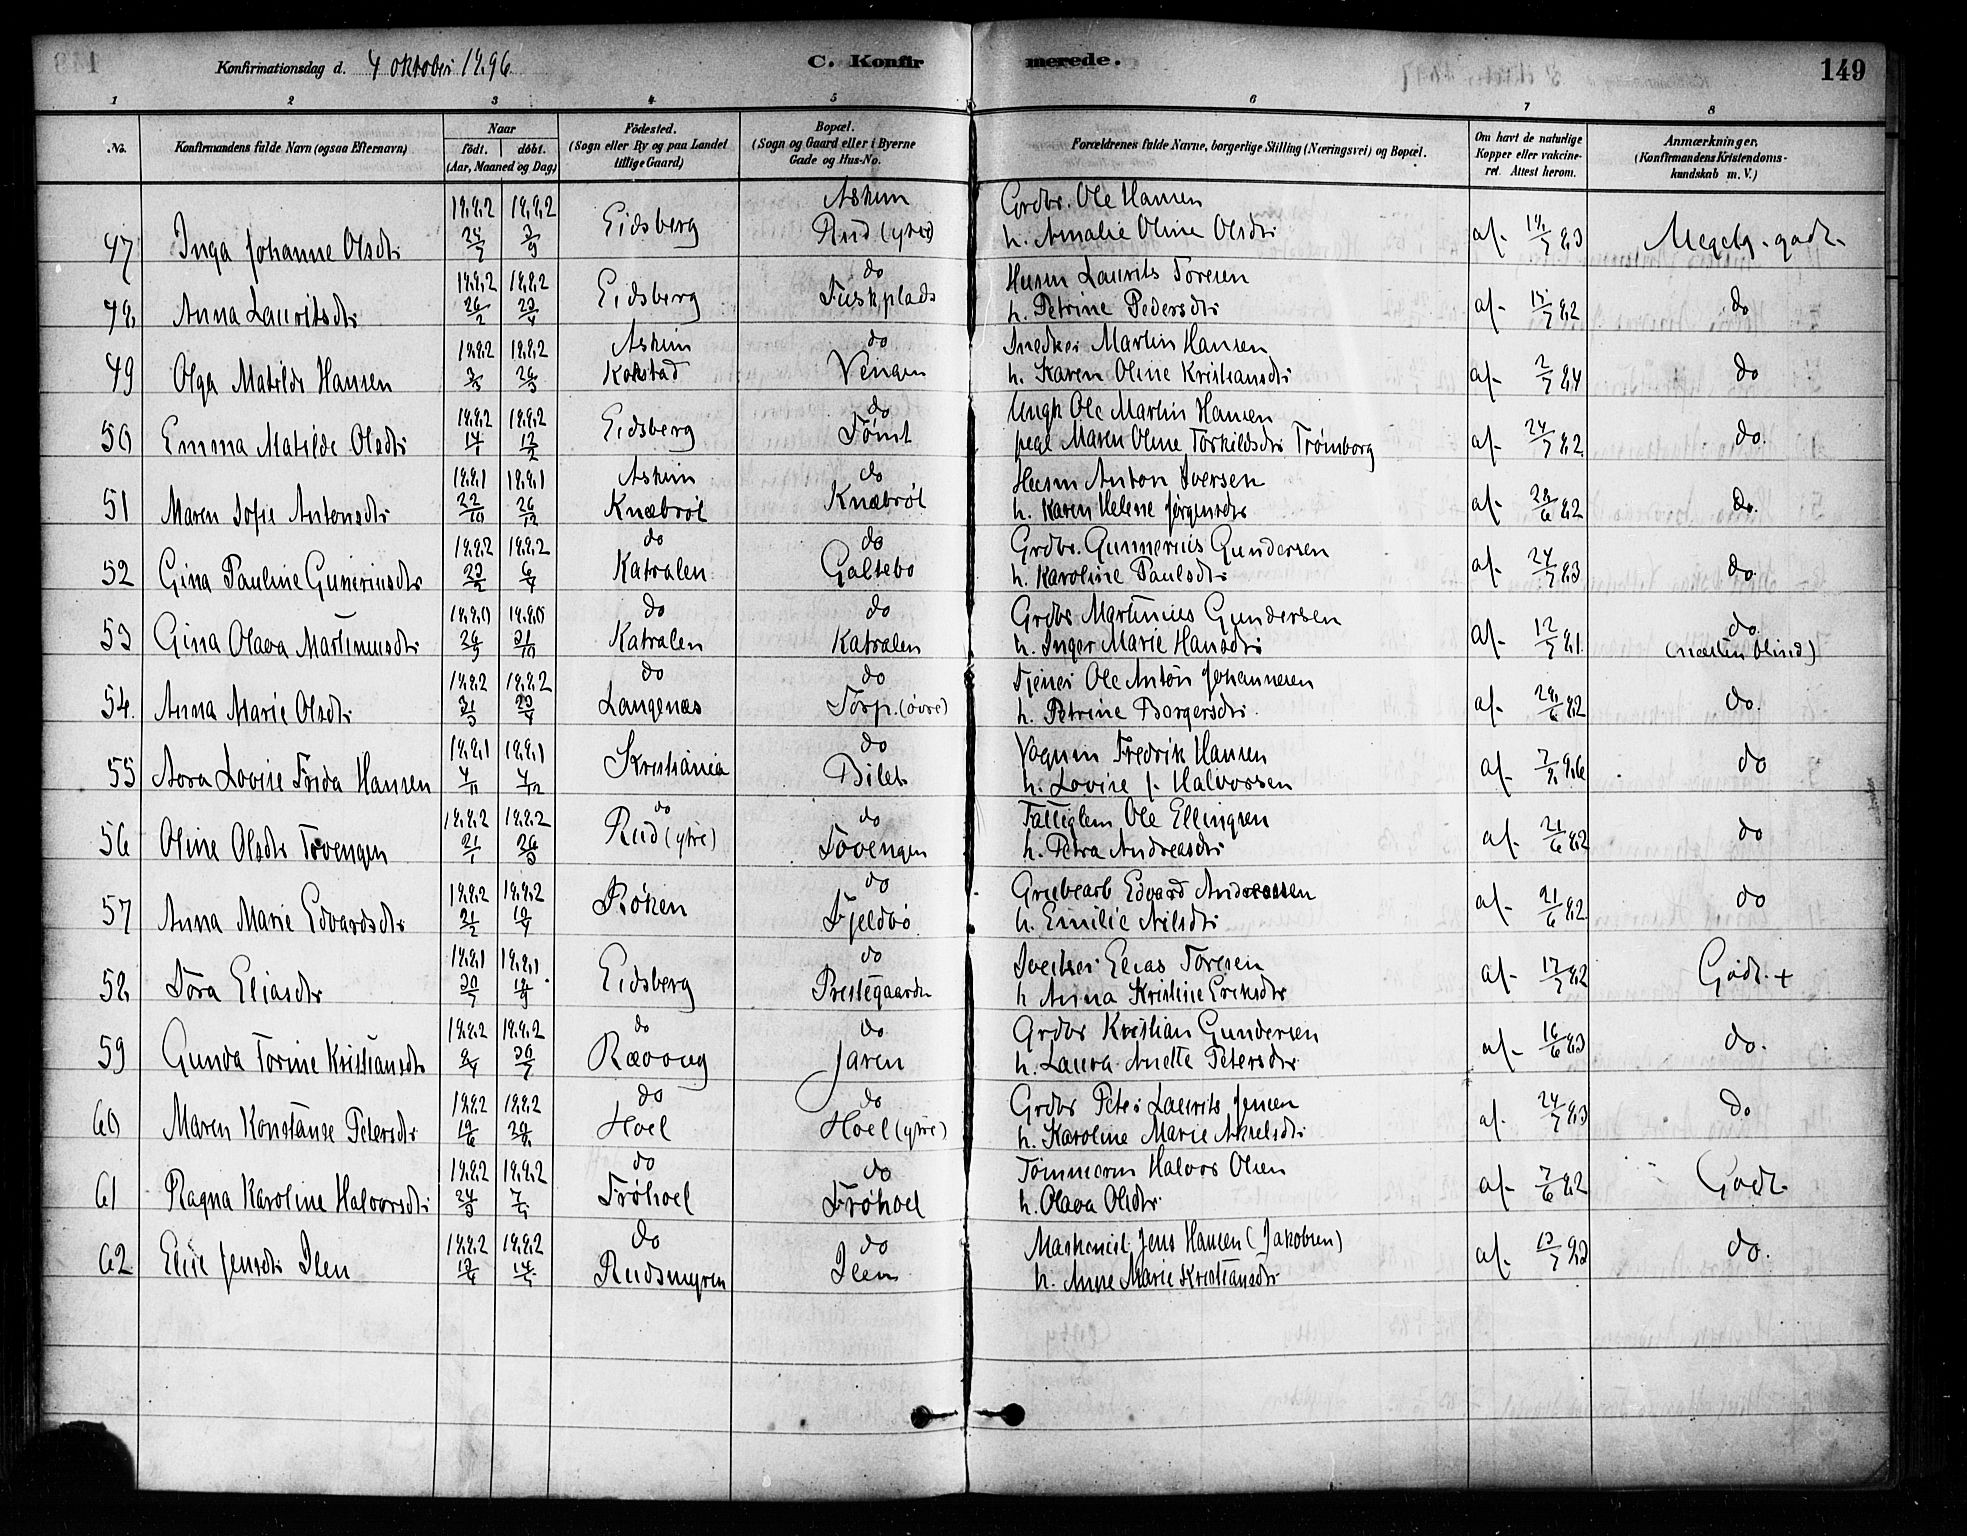 Konfirmationsdag d. 4 oktober 1896
C. Konfirmerede.
149
1 2 3 4 5 6 7 8
No.
Konfirmandens fulde Navn (ogsaa Efternavn)
Naar
født. døbt.
(Aar, Maaned og Dag)
Fødested.
(Sogn eller By og paa Landet
tillige Gaard)
Bopæl.
(Sogn og Gaard eller i Byerne
Gade og Hus-No.
Forældrenes fulde Navne, borgerlige Stilling (Næringsvei) og Bopæl.
Om havt de naturlige
Kopper eller vakcine-
ret. Attest herom.
Anmærkninger.
(Konfirmandens Kristendoms-
kundskab m. V.)
1882 1882 Askim Grdbr. Ole Hansen
47 Inga Johanne Olsdtr Eidsberg Rud (ytre) h. Amalie Oline Olsdtr af Meget godt.
1882 1882 do Husm Laurits Toresen
48 Anna Lauritsdtr 26/2 23/4 Eidsberg Tuskplads h. Petrine Pedersdtr af 82 do
1882 1882 Askim do Snedker Martin Hansen
49 Olga Matilde Hansen Kokstad Vengen h. Karen Oline Kristiansdtr af 2/7 84 do
1882 1882 do Ungk Ole Martin Hansen
50 Emma Matilde Olsdtr 14/1 12/2 Eidsberg Tømt pege Maren Oline Torkildsdtr Trømborg af 24/7 82 do.
1881 1881 Askim do Husm Anton Iversen
51 Maren Sofie Antonsdtr 22/10 26/12 Knæbrøt Knæbrøt h. Karen Helene Jørgensdtr af 28/6 82 do.
1882 1882 do do Grdbr. Gunnerius Gundersen
52 Gina Pauline Guneriusdtr Katralen Galtebo h. Karoline Paulsdtr af 24/7 83 do
1880 1880 do do Grdbr Martinius Gundersen do
53 Gina Olava Martinusdtr Katralen Katralen h. Inger Marie Hansdtr af 12/7 81 (næsten blind)
1882 1882 do do Tjener Ole Anton Johannesen
54. Anna Marie Olsdtr Langenæs Torp. (øvre) h. Petrine Borgersdtr af 82 do.
1881 1881 do Vognm Fredrik Hansen
55 Aora Lovise Frida Hansen 4/11 4/12 Kristiania Bilet h. Lovise f. Halvorsen af 96 do
1882 1882 do do Fattiglem Ole Ellingsen
56 Oline Olsdtr Tovengen Rud (ytre) Tovengen h. Petra Andreasdtr af 21/6 82 do
1882 1882 do Grubearb Edvard Andreassen
57 Anna Marie Edvardsdtr 21/2 10/4 Røken Fjeldbo h. Emilie Nilsdtr af 21/6 82 do
1881 1881 do Sveitser Elias Toresen
58 Tora Eliasdtr Eidsberg Prestegaarden h Anna Kristine Eriksdtr af 17/7 82 Godt. +
1882 1882 do do Grdbr Kristian Gundersen
59 Gunda Torine Kristiansdtr Rævoug Jaren h. Laura Anette Petersdtr af 16/6 83 do.
1882 1882 do do Grdbr Peter Laurits Jensen
60 Maren Konstanse Petersdtr Hoel Hoel (ytre) h. Karoline Marie Akselsdtr af 24/7 83 do
1882 1882 do do Tømmerm Halvor Olsen
61 Ragna Karoline Halvorsdtr Frøhoel Frøhoel h. Olava Olsdtr. af 7/6 82 Godt.
1882 1882 do do Maskinist Jens Hansen (Jakobsen)
62 Elise Jensdtr Ilen Rudsmyren Ilen h. Anne Marie Kristiansdtr af do.